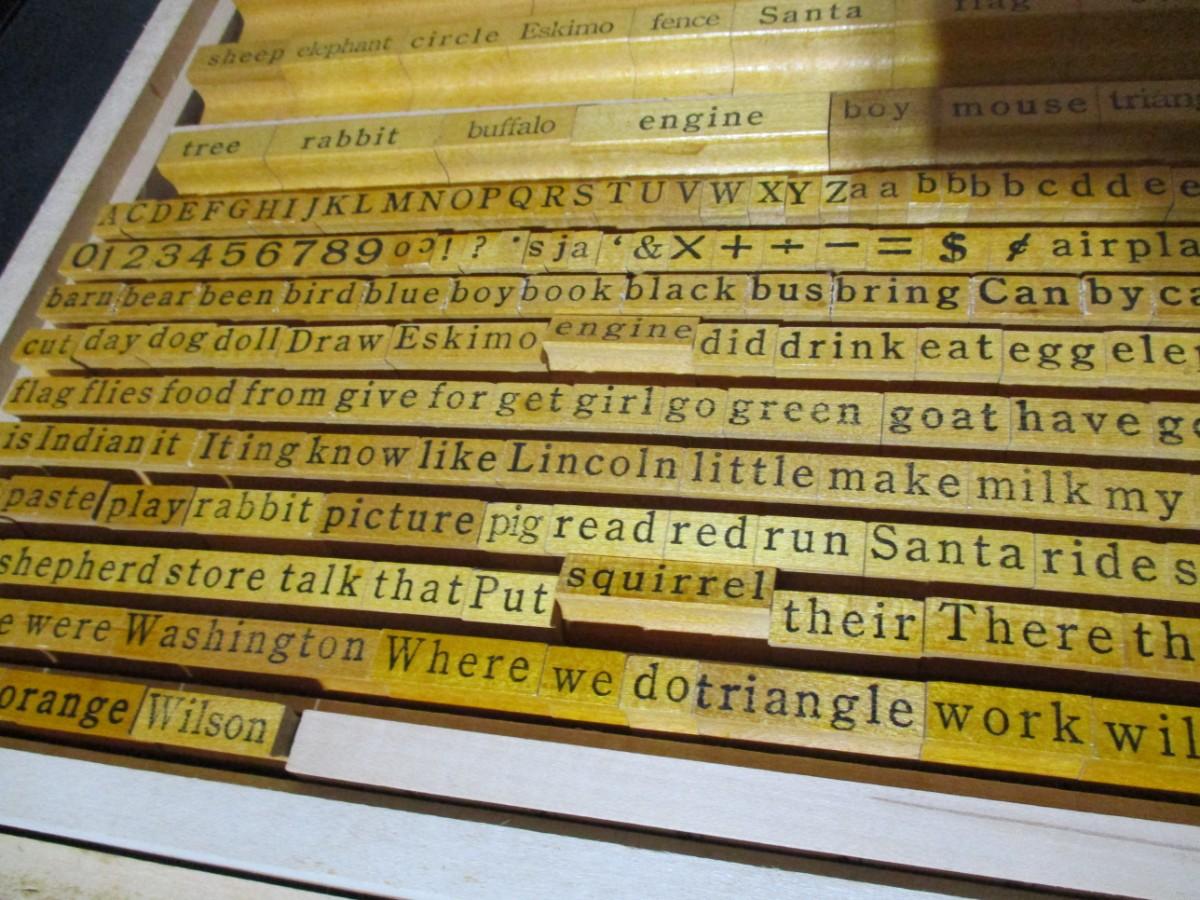 sheep elephant circle Eskimo fence Santa flag
tree rabbit buffalo engine boy mouse
A C D E F G H I J K L M N O P Q R S T U V W X Y Z a a b b b b c d d e e
0 1 2 3 4 5 6 7 8 9 o ! ? 's ja ‘ & X + ÷ − = $ ¢
barn bear been bird blue boy book black bus bring Can by
cut day dog doll Draw Eskimo engine did drink eat egg
flag flies food from give for get girl go green goat have
is Indian it It ing know like Lincoln little make milk my
paste play rabbit picture pig read red run Santa ride
shepherd store talk that Put squirrel their There
were Washington Where we do triangle work
orange Wilson